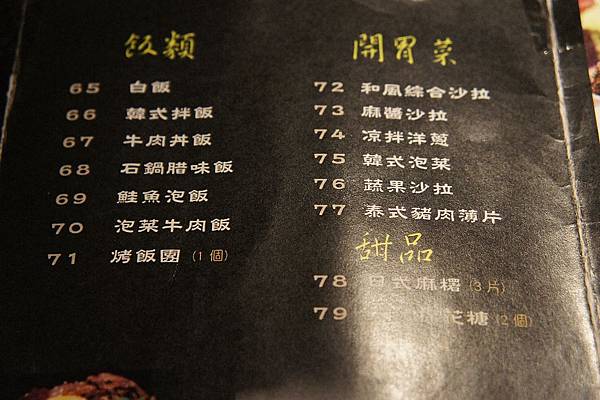 飯類
65 白飯
66 韓式拌飯
67 牛肉丼飯
68 石鍋腊味飯
69 鮭魚泡飯
70 泡菜牛肉飯
71 烤飯團 (1個)
開胃菜
72 和風綜合沙拉
73 麻醬沙拉
74 凉拌洋蔥
75 韓式泡菜
76 蔬果沙拉
77 泰式豬肉薄片
甜品
78 日式麻糬 (3片)
79 花糖 (2個)